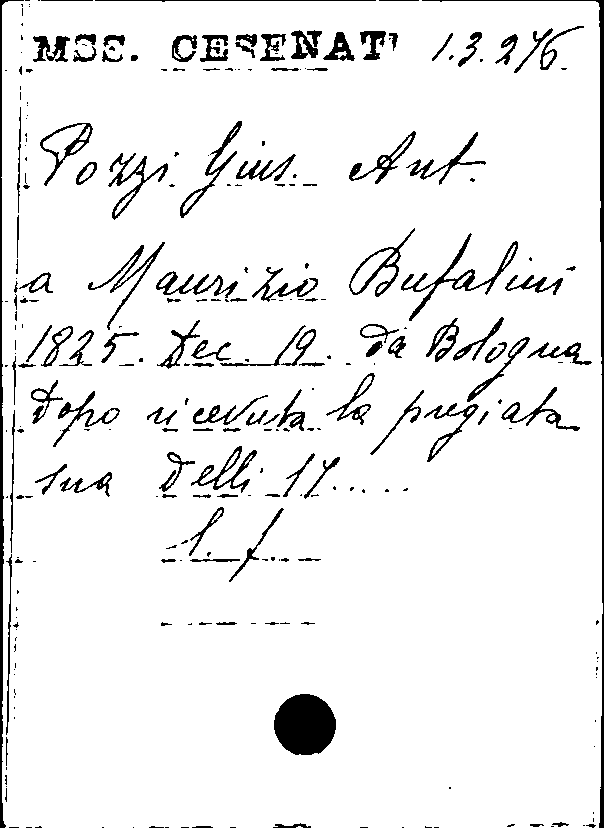 MSS. CESENATI 1.3.276
Pozzi Gius. Ant.
a Maurizio Bufalini
1825. Dec. 19. da Bologna
Dopo ricevuta la pregiata
sua delli 17.....
l. f.